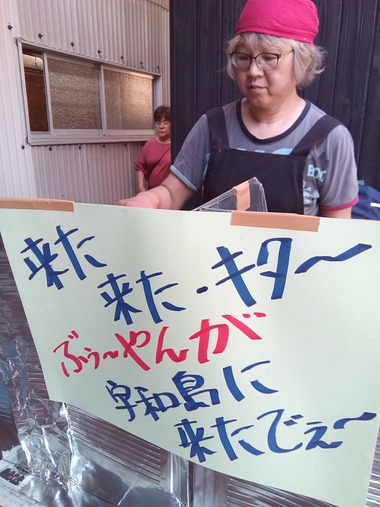 来た
来た・キタ～
ぶぅ～やんが
宇和島に
来たでぇ～